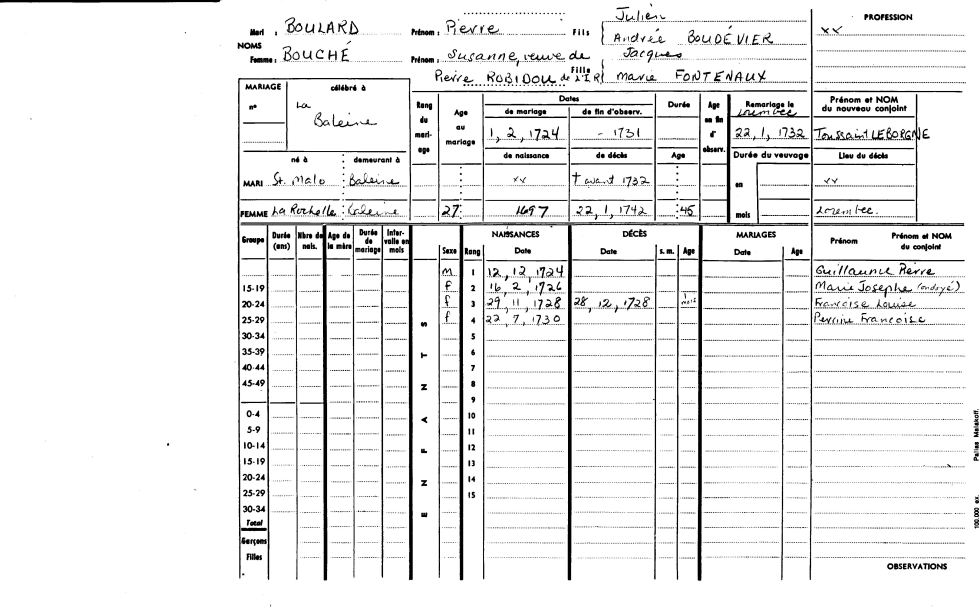 Julien
Mari : BOULARD Prénom : Pierre Fils Andrée BOUDÉVIER
PROFESSION
xx
NOMS
Femme : BOUCHÉ Prénom : Susanne, veuve de Jacques
Pierre ROBIDOU de Fille Marie FONTENAUX
MARIAGE célébré à
n° La Baleine
Rang du mariage
Age au mariage
Dates
de mariage de fin d'observ.
1, 2, 1724 - 1731
Durée
Age en fin d' observ.
Remariage le
Lorembec
22, 1, 1732
Prénom et NOM du nouveau conjoint
Toussaint LEBORGNE
né à demeurant à de naissance de décès Age Durée du veuvage Lieu du décès
MARI St. Malo Baleine xx † avant 1732 en xx
FEMME La Rochelle Baleine 27 1697 22, 1, 1742 45 mois Lorembec.
Groupe Durée (ans) Nbre de nais. Age de la mère Durée de mariage Intervalle en mois
ENFANTS
Sexe Rang NAISSANCES Date DÉCÈS Date s. m. Age MARIAGES Date Age Prénom Prénom et NOM du conjoint
M 1 12, 12, 1724 Guillaume Pierre
15-19 f 2 16, 2, 1726 Marie Josephe (ondoyé)
20-24 f 3 29, 11, 1728 28, 12, 1728 1 mois Francoise Louise
25-29 f 4 22, 7, 1730 Perrine Francoise
30-34 5
35-39 6
40-44 7
45-49 8
9
0-4 10
5-9 11
10-14 12
15-19 13
20-24 14
25-29 15
30-34
Total
Garçons
Filles
OBSERVATIONS
100.000 ex. Pallas Malakoff.